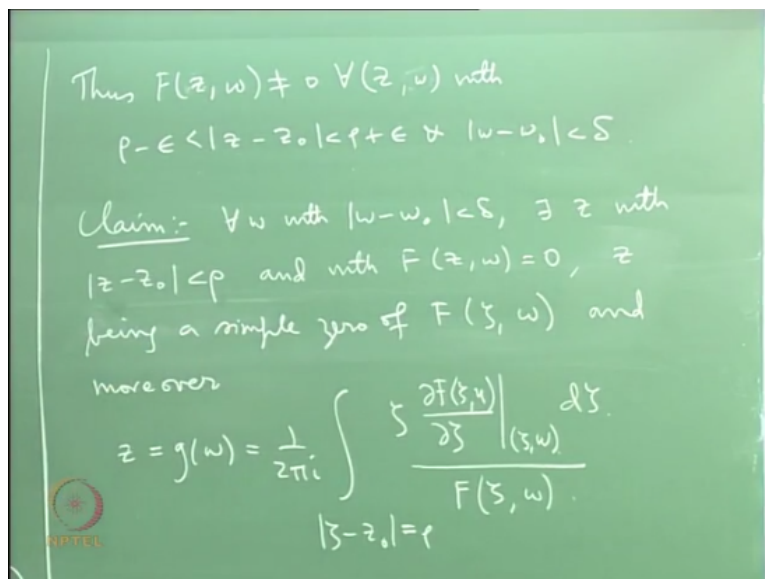 Thus F(z, w) ≠ 0 ∀(z, w) with
ρ-ϵ < |z - z₀| < ρ+ϵ & |w-w₀| < δ.
Claim:- ∀ w with |w-w₀| < δ, ∃ z with
|z-z₀| < ρ and with F(z, w) = 0, z
being a simple zero of F(ζ, w) and
moreover
z = g(w) = 1/2πi ∫_{|ζ-z₀|=ρ} ζ ∂F(ζ,w)/∂ζ |_(ζ,w) dζ / F(ζ, w).
NPTEL